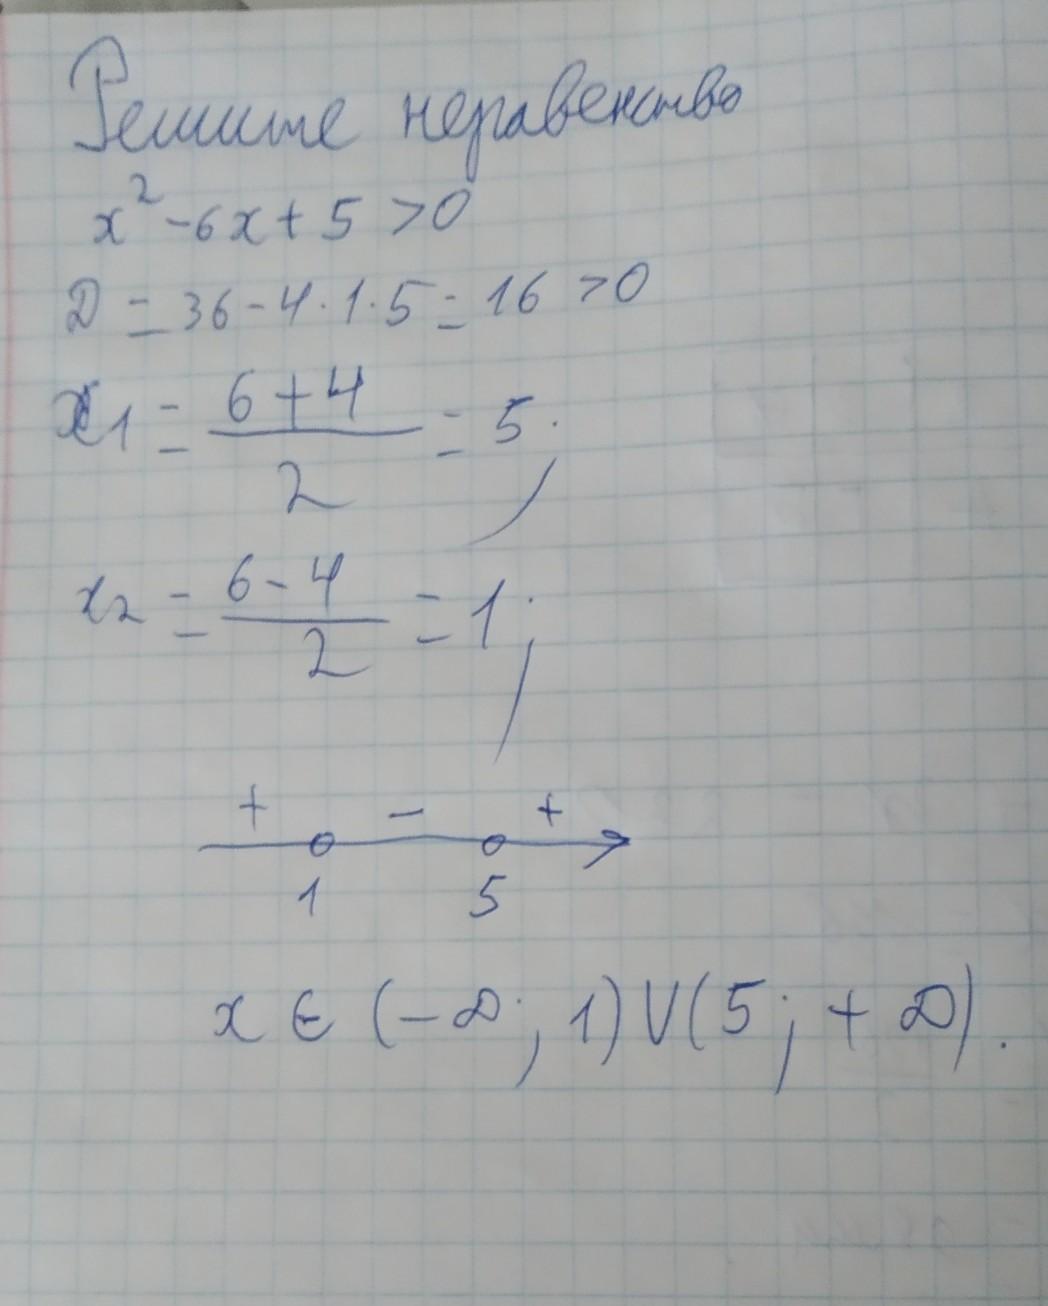 Решите неравенство
x² - 6x + 5 > 0
D = 36 - 4 · 1 · 5 = 16 > 0
x₁ = (6 + 4)/2 = 5;
x₂ = (6 - 4)/2 = 1;
+ - +
1 5
x ∈ (-∞; 1) ∪ (5; +∞).